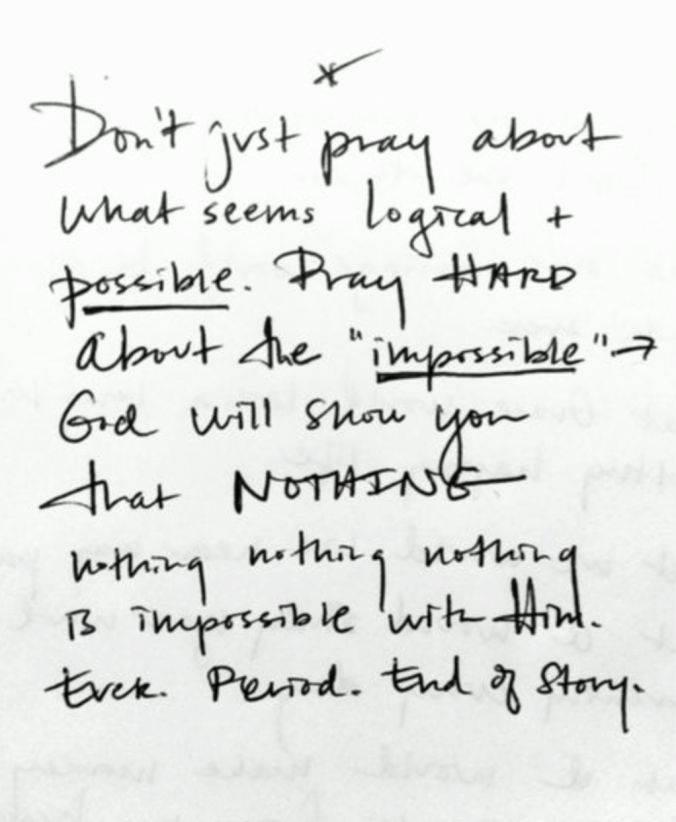 Don't just pray about
what seems logical +
possible. Pray HARD
about the "impossible" →
God will show you
that NOTHING
nothing nothing nothing
is impossible with Him.
Ever. Period. End of Story.